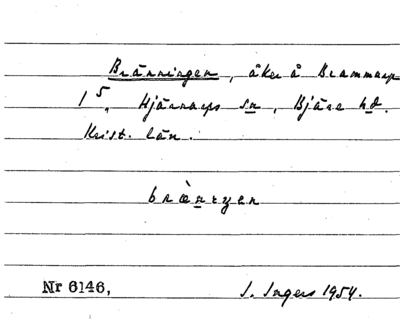 Bränningen, åker å Brammarp
1⁵, Hjärnarps sn, Bjäre hd.
Krist. län.
bræ̀nıŋen
Nr 6146,
S. Ingers 1954.